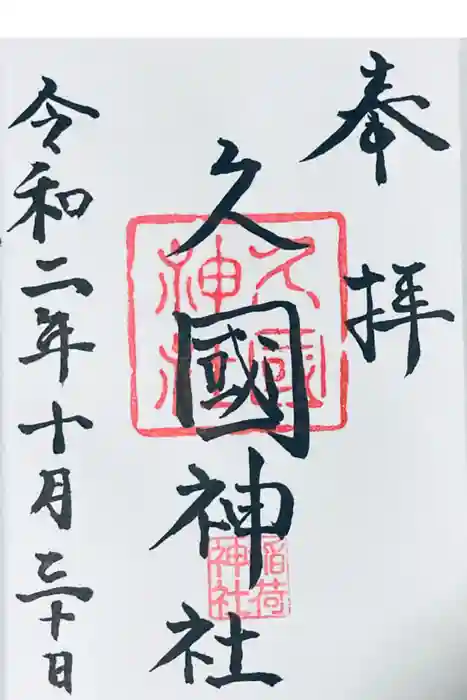 奉拝
久國神社
久國神社
稲荷神社
令和二年十月三十日